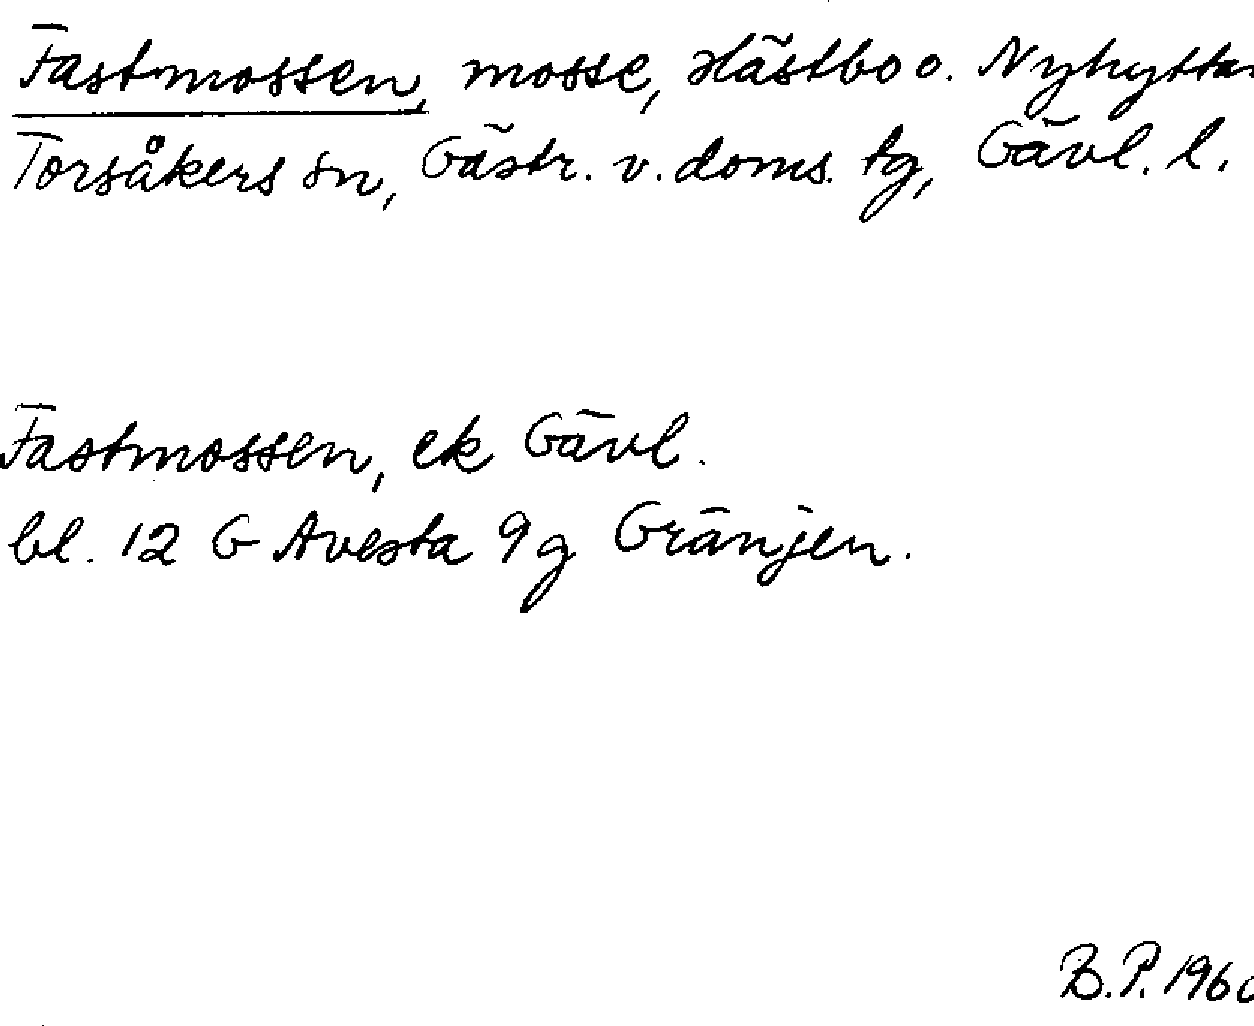 Fastmossen, mosse, Hästbo o. Nyhyttan
Torsåkers sn, Gästr. v. doms. tg, Gävl. l.
Fastmossen, ek Gävl.
bl. 12 G Avesta 9g Gränjen.
B.P. 1960